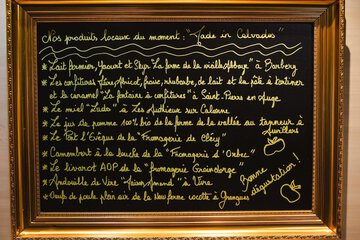 Nos produits locaux du moment : "Made in Calvados"
* Lait fermier, Yaourt et Skyr "La ferme de la Abbaye" à Barbery
* Les confitures fraise, abricot, fraise, rhubarbe, de lait et la pâte à tartiner
et le caramel "La fontaine à confitures" à Saint-Pierre en auge
* Le miel "Ludo" à Les Authieux sur Calonne
* Le jus de pomme 100% bio de la ferme de la vallée au tanneur à
* Le Pont l'Evêque de la "Fromagerie de Clécy"
* Camembert à la louche de la "Fromagerie d'Orbec"
* Le livarot AOP de la "fromagerie Graindorge"
* Andouille de Vire "Amand" à Vire
* Oeufs de poule plein air de la ferme cocotte à
Bonne
dégustation !